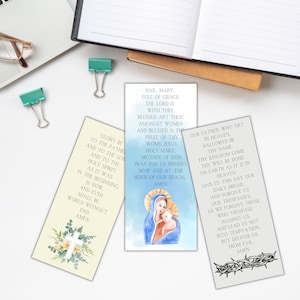 GLORY BE
TO THE FATHER
AND TO THE SON
AND TO THE
HOLY SPIRIT
AS IT WAS
IN THE BEGINNING,
IS NOW,
AND EVER
SHALL BE,
WORLD WITHOUT
END.
AMEN.
HAIL, MARY,
FULL OF GRACE,
THE LORD IS
WITH THEE.
BLESSED ART THOU
AMONGST WOMEN
AND BLESSED IS THE
FRUIT OF THY
WOMB, JESUS.
HOLY MARY,
MOTHER OF GOD,
PRAY FOR US SINNERS,
NOW AND AT THE
HOUR OF OUR DEATH.
AMEN.
OUR FATHER, WHO ART
IN HEAVEN,
HALLOWED BE
THY NAME;
THY KINGDOM COME,
THY WILL BE DONE
ON EARTH AS IT IS
IN HEAVEN.
GIVE US THIS DAY OUR
DAILY BREAD,
AND FORGIVE US
OUR TRESPASSES,
AS WE FORGIVE THOSE
WHO TRESPASS
AGAINST US;
AND LEAD US NOT
INTO TEMPTATION,
BUT DELIVER US
FROM EVIL.
AMEN.